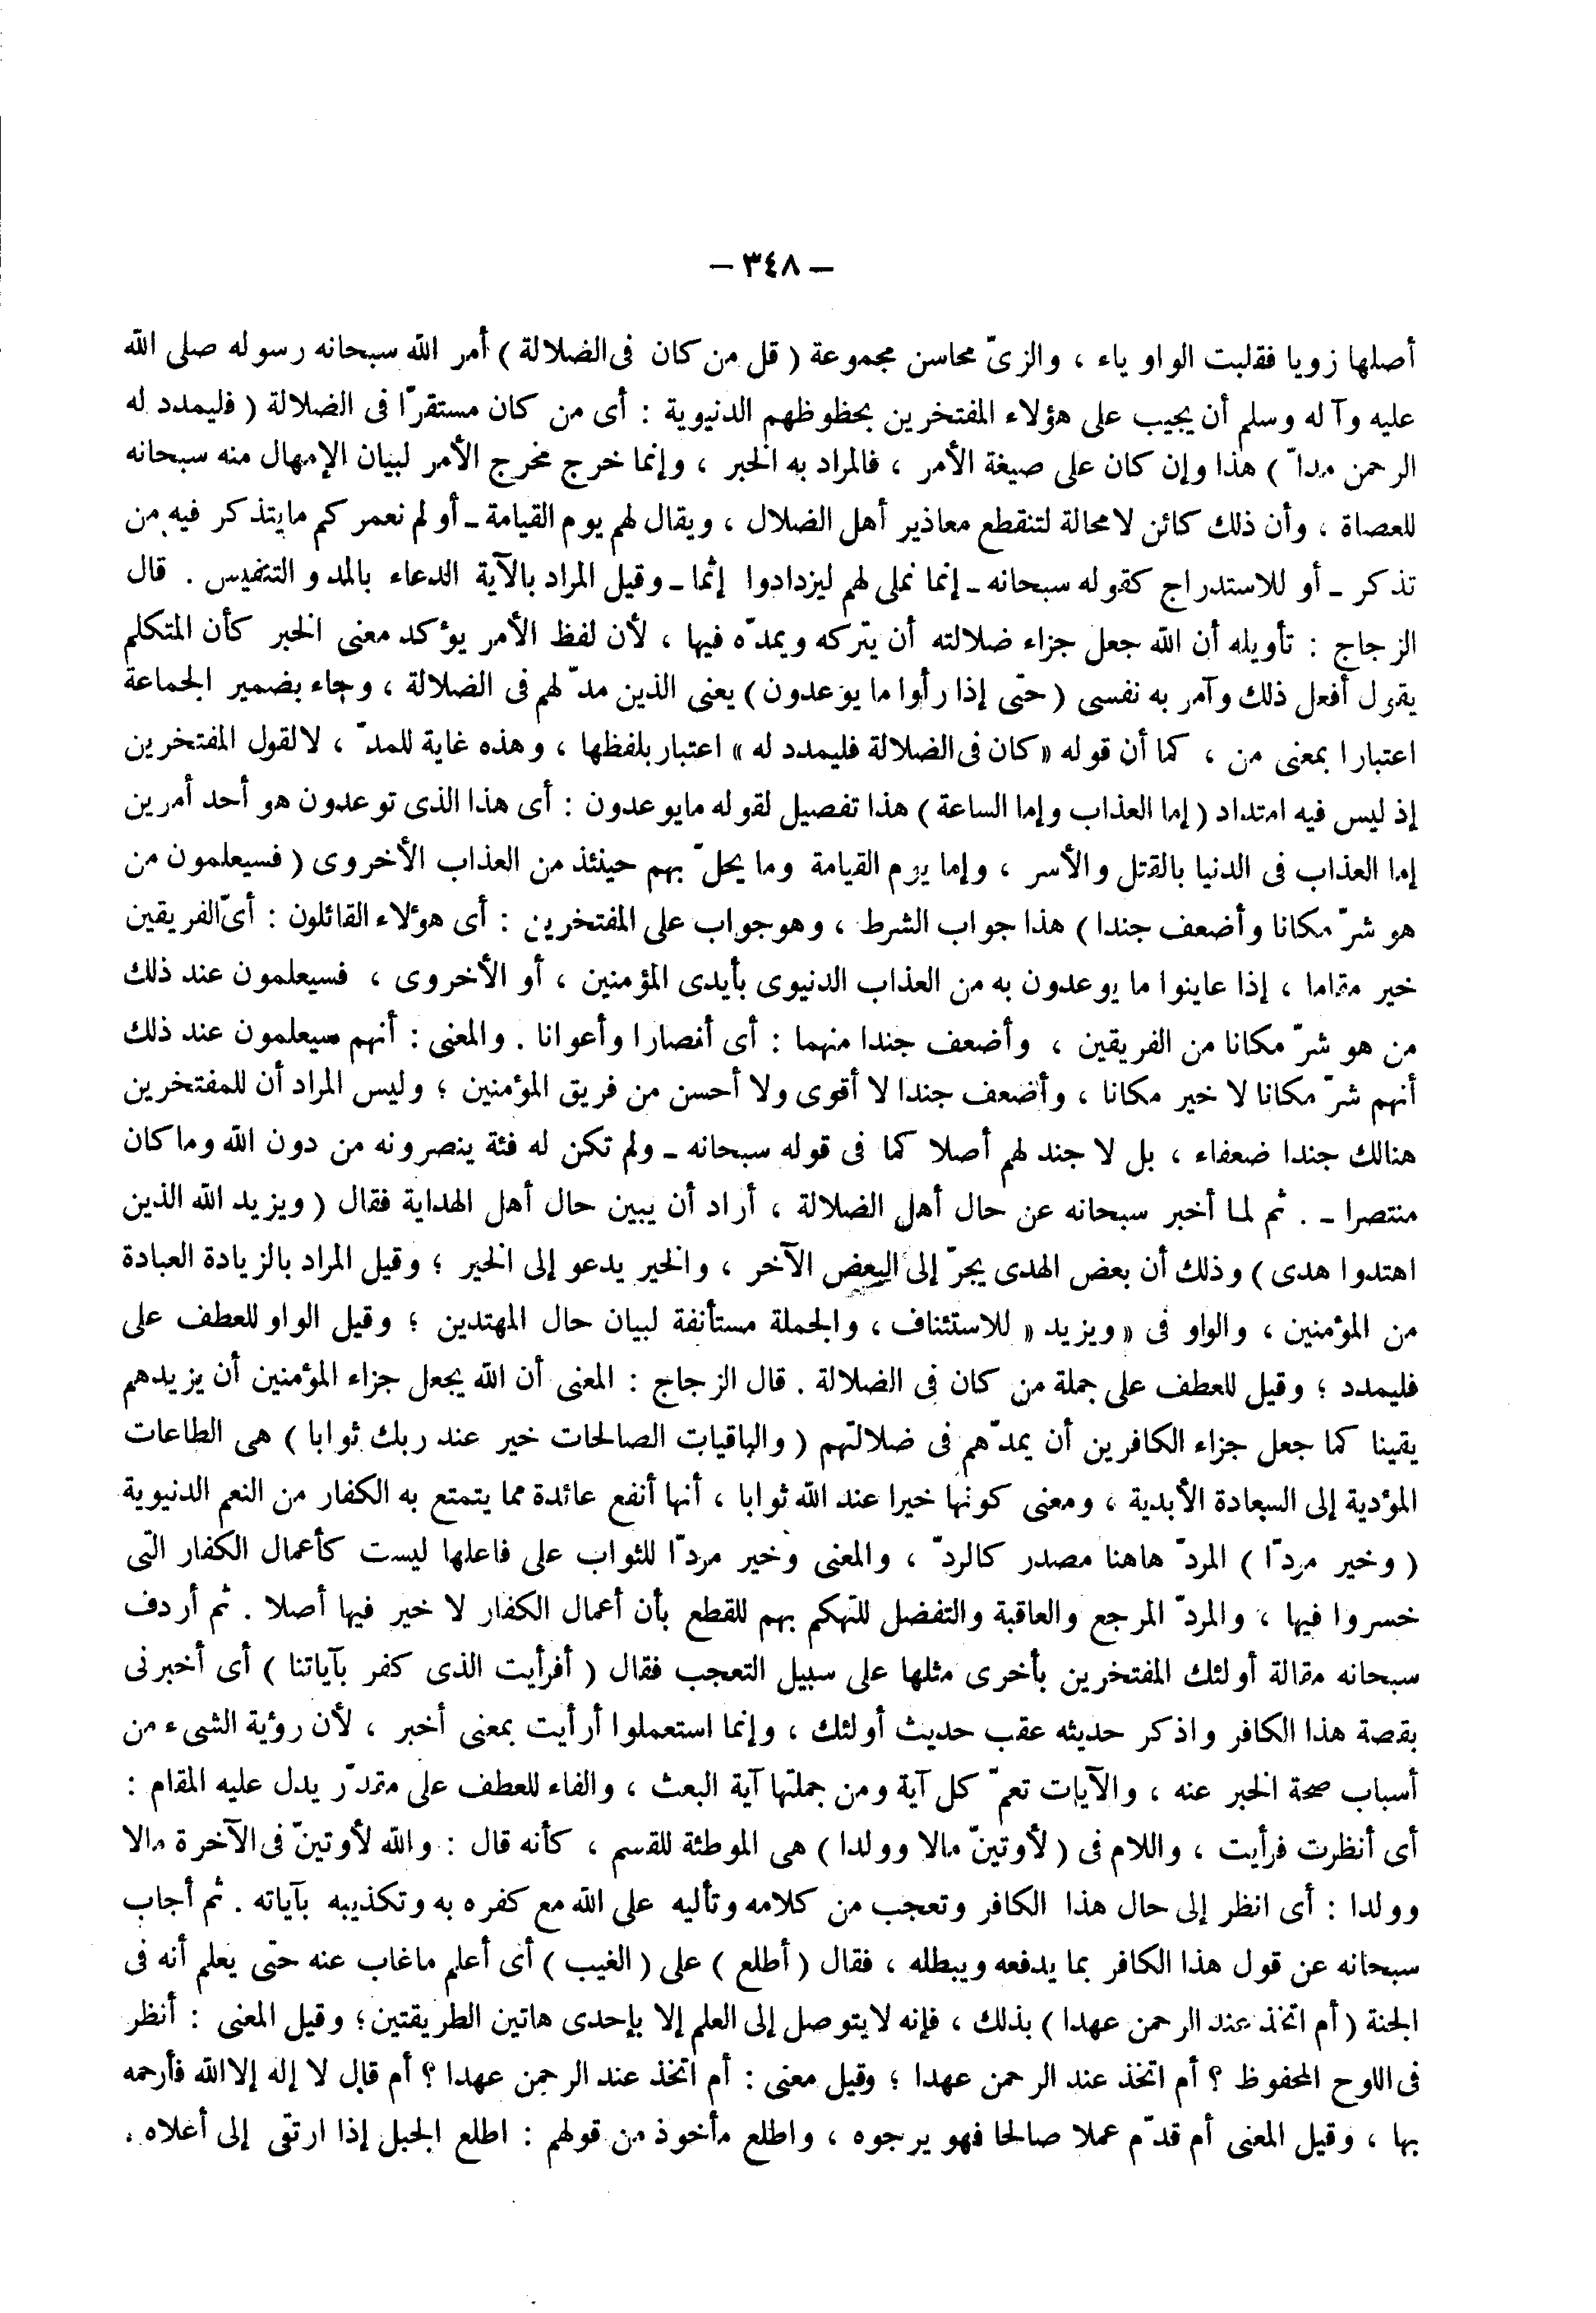 – ٣٤٨ –
أصلها زويا فقلبت الواو ياء ، والزىّ محاسن مجموعة ( قل من كان فى الضلالة ) أمر الله سبحانه رسوله صلى الله
عليه وآله وسلم أن يجيب على هؤلاء المفتخرين بحظوظهم الدنيوية : أى من كان مستقرّا فى الضلالة ( فليمدد له
الرحمن مدا ّ ) هذا وإن كان على صيغة الأمر ، فالمراد به الخبر ، وإنما خرج مخرج الأمر لبيان الإمهال منه سبحانه
للعصاة ، وأن ذلك كائن لا محالة لتنقطع معاذير أهل الضلال ، ويقال لهم يوم القيامة ـ أو لم نعمركم ما يتذكر فيه من
تذكر ـ أو للاستدراج كقوله سبحانه ـ إنما نملى لهم ليزدادوا إثما ـ وقيل المراد بالآية الدعاء بالمد والتنفيس . قال
الزجاج : تأويله أن الله جعل جزاء ضلالته أن يتركه ويمدّه فيها ، لأن لفظ الأمر يؤكد معنى الخبر كأن المتكلم
يقول أفعل ذلك وآمر به نفسى ( حتى إذا رأوا ما يوعدون ) يعنى الذين مدّ لهم فى الضلالة ، وجاء بضمير الجماعة
اعتبارا بمعنى من ، كما أن قوله « كان فى الضلالة فليمدد له » اعتبار بلفظها ، وهذه غاية للمدّ ، لا لقول المفتخرين
إذ ليس فيه امتداد ( إما العذاب وإما الساعة ) هذا تفصيل لقوله ما يوعدون : أى هذا الذى توعدون هو أحد أمرين
إما العذاب فى الدنيا بالقتل والأسر ، وإما يوم القيامة وما يحلّ بهم حينئذ من العذاب الأخروى ( فسيعلمون من
هو شرّ مكانا وأضعف جندا ) هذا جواب الشرط ، وهو جواب على المفتخرين : أى هؤلاء القائلون : أىّ الفريقين
خير مقاما ، إذا عاينوا ما يوعدون به من العذاب الدنيوى بأيدى المؤمنين ، أو الأخروى ، فسيعلمون عند ذلك
من هو شرّ مكانا من الفريقين ، وأضعف جندا منهما : أى أنصارا وأعوانا . والمعنى : أنهم سيعلمون عند ذلك
أنهم شرّ مكانا لا خير مكانا ، وأضعف جندا لا أقوى ولا أحسن من فريق المؤمنين ؛ وليس المراد أن للمفتخرين
هنالك جندا ضعفاء ، بل لا جند لهم أصلا كما فى قوله سبحانه ـ ولم تكن له فئة ينصرونه من دون الله وما كان
منتصرا ـ . ثم لما أخبر سبحانه عن حال أهل الضلالة ، أراد أن يبين حال أهل الهداية فقال ( ويزيد الله الذين
اهتدوا هدى ) وذلك أن بعض الهدى يجرّ إلى البعض الآخر ، والخير يدعو إلى الخير ؛ وقيل المراد بالزيادة العبادة
من المؤمنين ، والواو فى « ويزيد » للاستئناف ، والجملة مستأنفة لبيان حال المهتدين ؛ وقيل الواو للعطف على
فليمدد ؛ وقيل للعطف على جملة من كان فى الضلالة . قال الزجاج : المعنى أن الله يجعل جزاء المؤمنين أن يزيدهم
يقينا كما جعل جزاء الكافرين أن يمدّهم فى ضلالتهم ( والباقيات الصالحات خير عند ربك ثوابا ) هى الطاعات
المؤدية إلى السعادة الأبدية ، ومعنى كونها خيرا عند الله ثوابا ، أنها أنفع عائدة مما يتمتع به الكفار من النعم الدنيوية
( وخير مردّا ) المردّ هاهنا مصدر كالردّ ، والمعنى وخير مردّا للثواب على فاعلها ليست كأعمال الكفار التى
خسروا فيها ، والمردّ المرجع والعاقبة والتفضل للتهكم بهم للقطع بأن أعمال الكفار لا خير فيها أصلا . ثم أردف
سبحانه مقالة أولئك المفتخرين بأخرى مثلها على سبيل التعجب فقال ( أفرأيت الذى كفر بآياتنا ) أى أخبرنى
بقصة هذا الكافر واذكر حديثه عقب حديث أولئك ، وإنما استعملوا أرأيت بمعنى أخبر ، لأن رؤية الشىء من
أسباب صحة الخبر عنه ، والآيات تعمّ كل آية ومن جملتها آية البعث ، والفاء للعطف على مقدّر يدل عليه المقام :
أى أنظرت فرأيت ، واللام فى ( لأوتينّ مالا وولدا ) هى الموطئة للقسم ، كأنه قال : والله لأوتينّ فى الآخرة مالا
وولدا : أى انظر إلى حال هذا الكافر وتعجب من كلامه وتأليه على الله مع كفره به وتكذيبه بآياته . ثم أجاب
سبحانه عن قول هذا الكافر بما يدفعه ويبطله ، فقال ( أطلع ) على ( الغيب ) أى أعلم ما غاب عنه حتى يعلم أنه فى
الجنة ( أم اتخذ عند الرحمن عهدا ) بذلك ، فإنه لا يتوصل إلى العلم إلا بإحدى هاتين الطريقتين ؛ وقيل المعنى : أنظر
فى اللوح المحفوظ ؟ أم اتخذ عند الرحمن عهدا ؛ وقيل معنى : أم اتخذ عند الرحمن عهدا ؟ أم قال لا إله إلا الله فأرحمه
بها ، وقيل المعنى أم قدّم عملا صالحا فهو يرجوه ، واطلع مأخوذ من قولهم : اطلع الجبل إذا ارتقى إلى أعلاه .